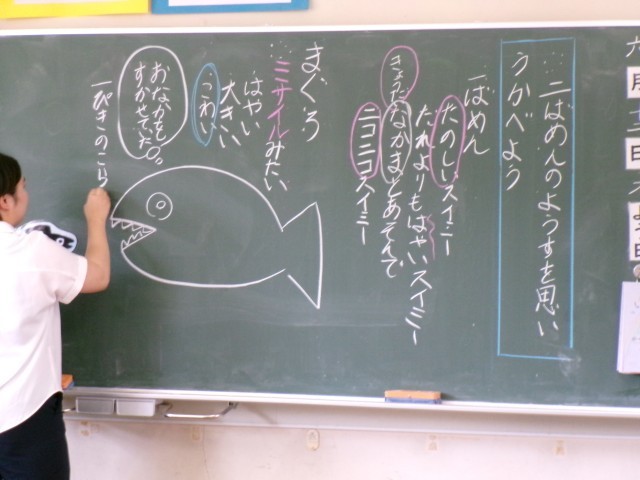 六月
日
二ばめんのようすを思い
うかべよう
一ばめん
たのしいスイミー
だれよりもはやいスイミー
きょうだいなかまとあそんで
ニコニコスイミー
まぐろ
ミサイルみたい
はやい
大きい
こわい
おなかを
すかせていた。
一ぴきのこら